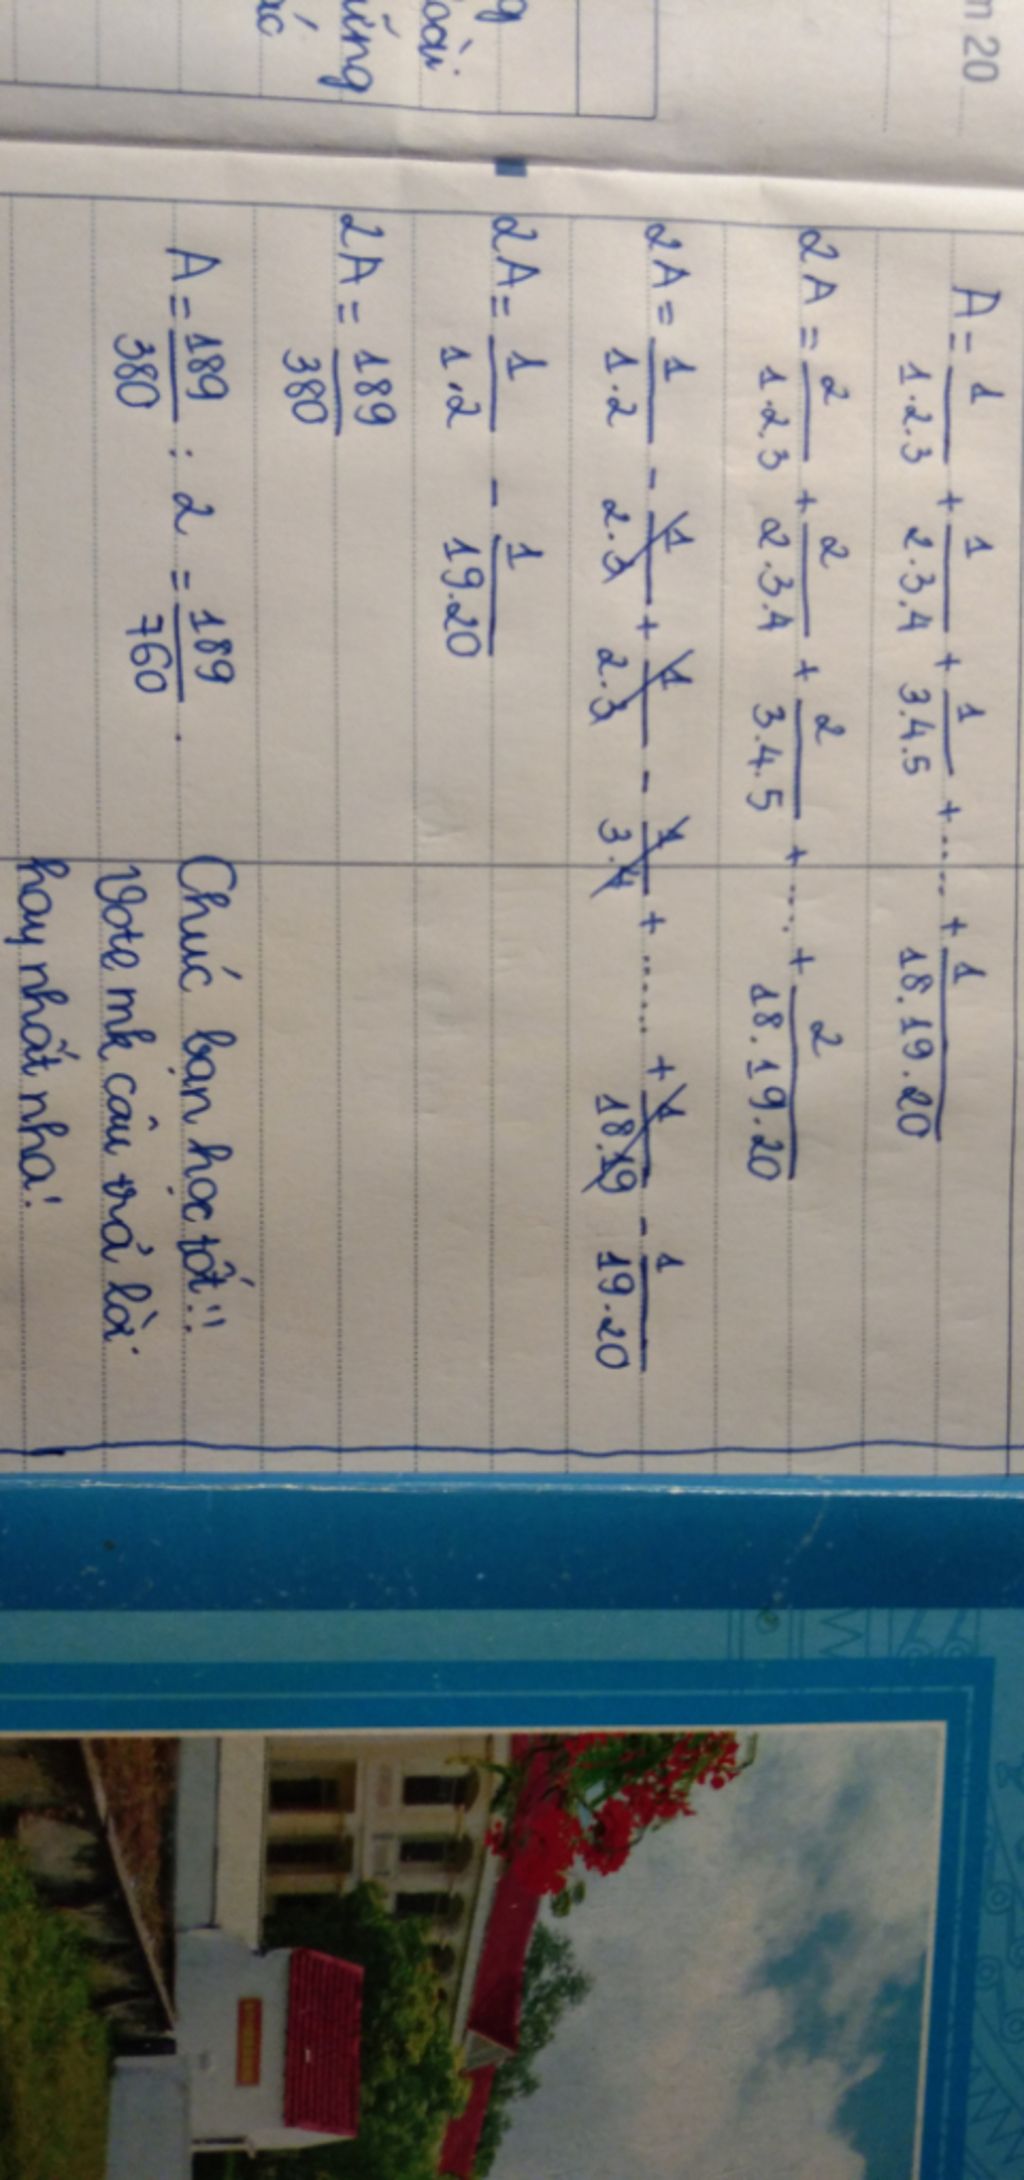 m 20
g
oài
ững
ác
A = 1/1.2.3 + 1/2.3.4 + 1/3.4.5 + ..... + 1/18.19.20
2A = 2/1.2.3 + 2/2.3.4 + 2/3.4.5 + .... + 2/18.19.20
2A = 1/1.2 - 1/2.3 + 1/2.3 - 1/3.4 + ...... + 1/18.19 - 1/19.20
2A = 1/1.2 - 1/19.20
2A = 189/380
A = 189/380 : 2 = 189/760 .
Chúc bạn học tốt!!
Vote mk câu trả lời
hay nhất nha!